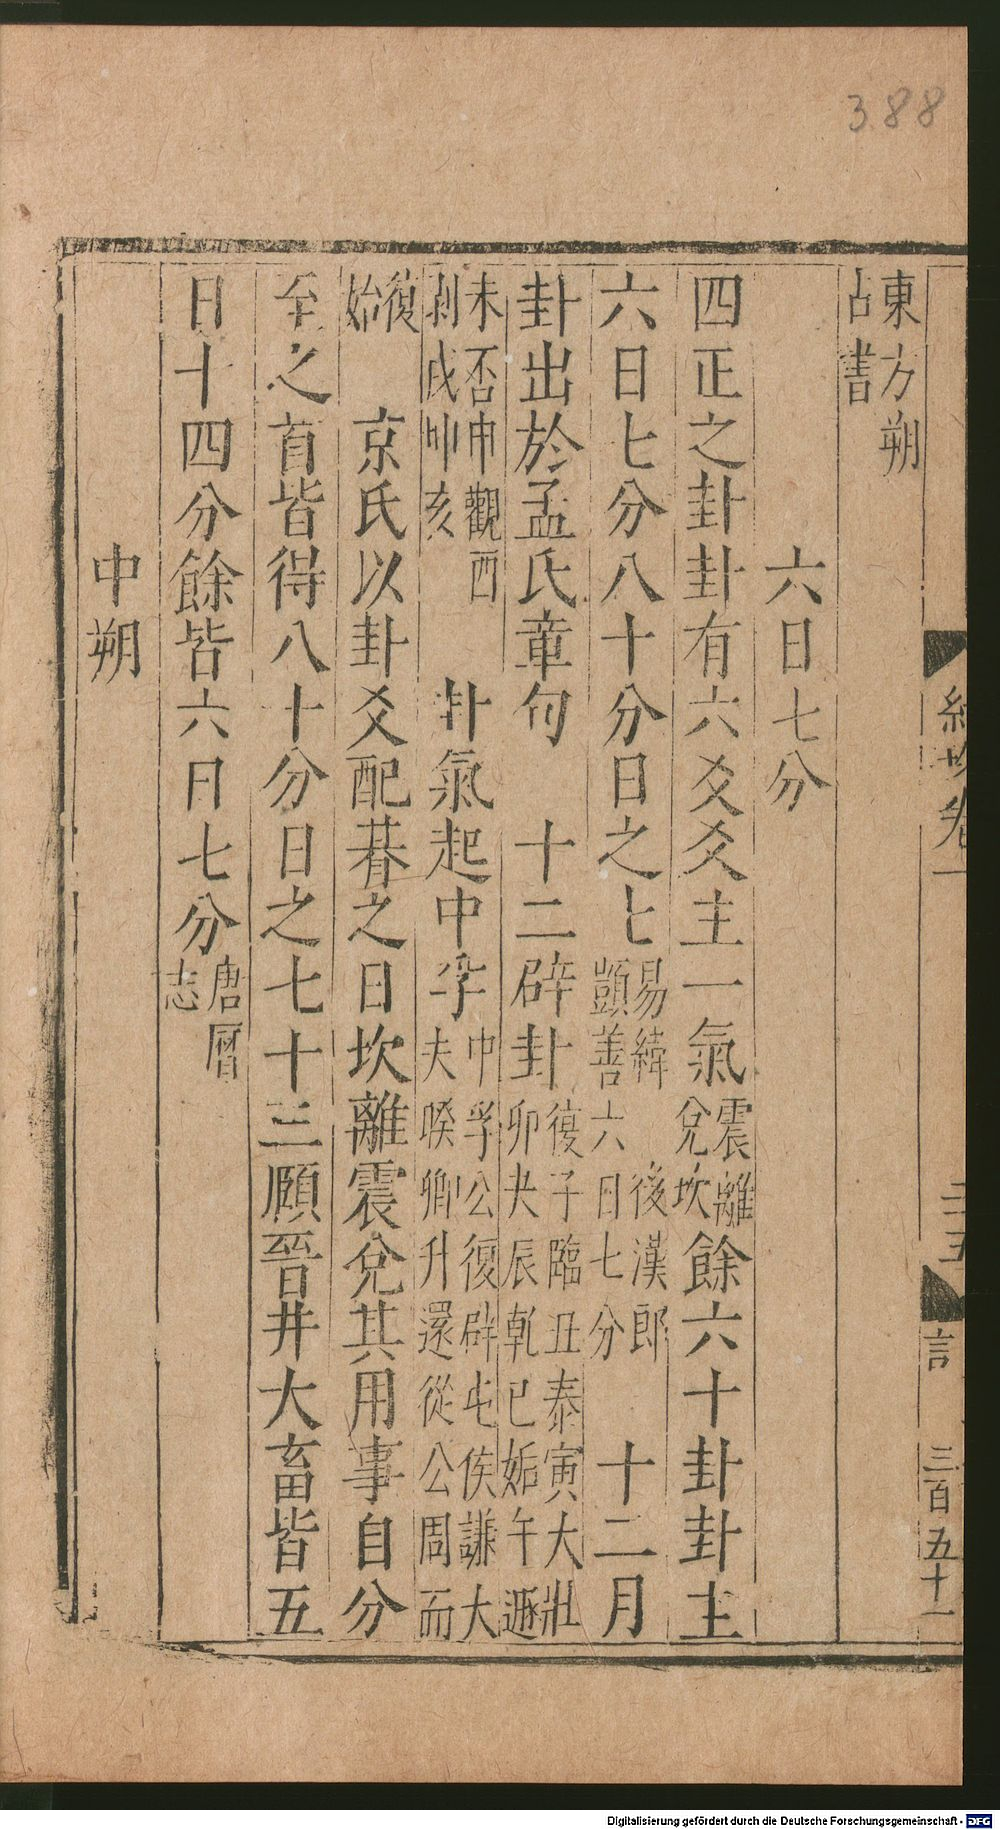 388
東方朔
占書
六日七分
四正之卦卦有六爻爻主一氣震離兌坎餘六十卦卦主
六日七分八十分日之七易緯 後漢郎顗善六日七分 十二月
卦出於孟氏章句 十二辟卦復子臨丑泰寅大壯卯夬辰乾巳姤午遯
未否申觀酉剥戌坤亥 卦氣起中孚中孚公復辟屯侯謙大夫暌卿升還從公周而
復始 京氏以卦爻配朞之日坎離震兌其用事自分
至之首皆得八十分日之七十三頤晉井大畜皆五
日十四分餘皆六日七分唐曆志
中朔
卷一
三百五十一
Digitalisierung gefördert durch die Deutsche Forschungsgemeinschaft - DFG